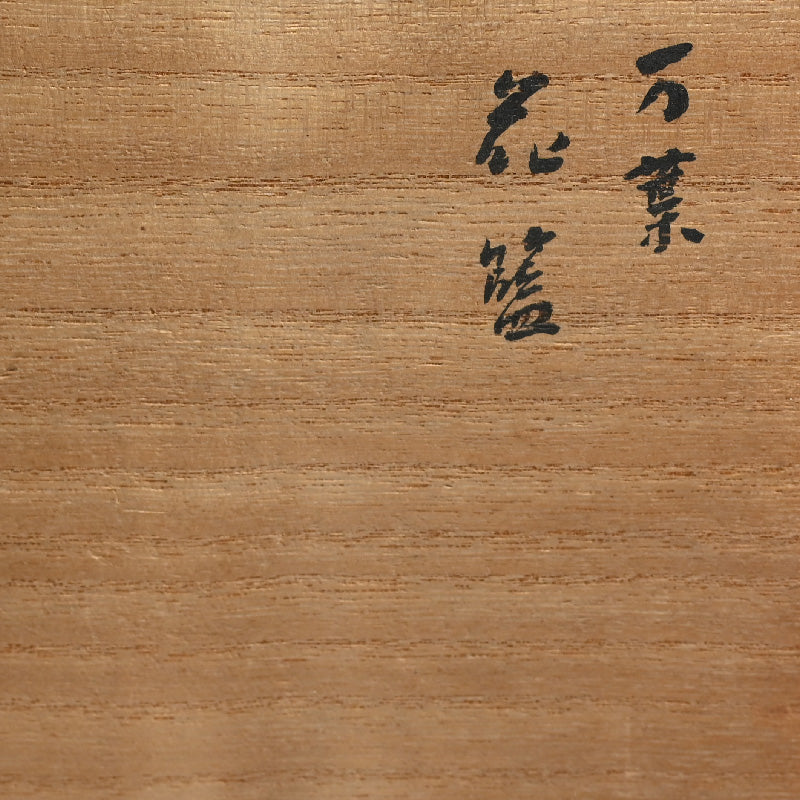 万葉
花籃